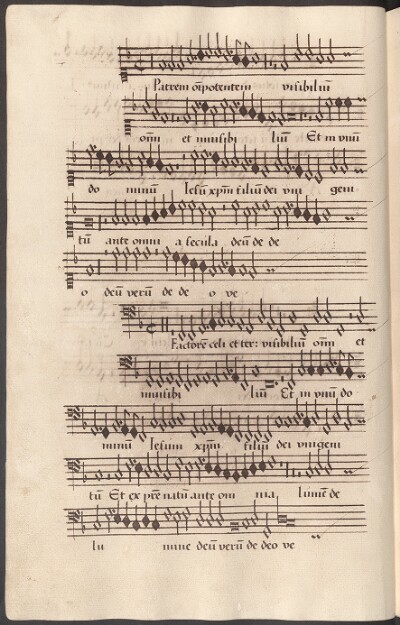 Patrem oīpotentem visibiliū
oīm et inuisibi liū Et in vnū
do minū Iesū xp̄m filiū dei vni geni
tū ante omnia secula deū de de
o deū verū de de o ve
Factorē celi et ter: visibiliū oīm et
inuisibi liū Et in vnū do
minū Iesum xp̄m filiū dei vnigeni
tū Et ex pr̄e natū ante om nia lumē de
lu mine deū verū de deo ve